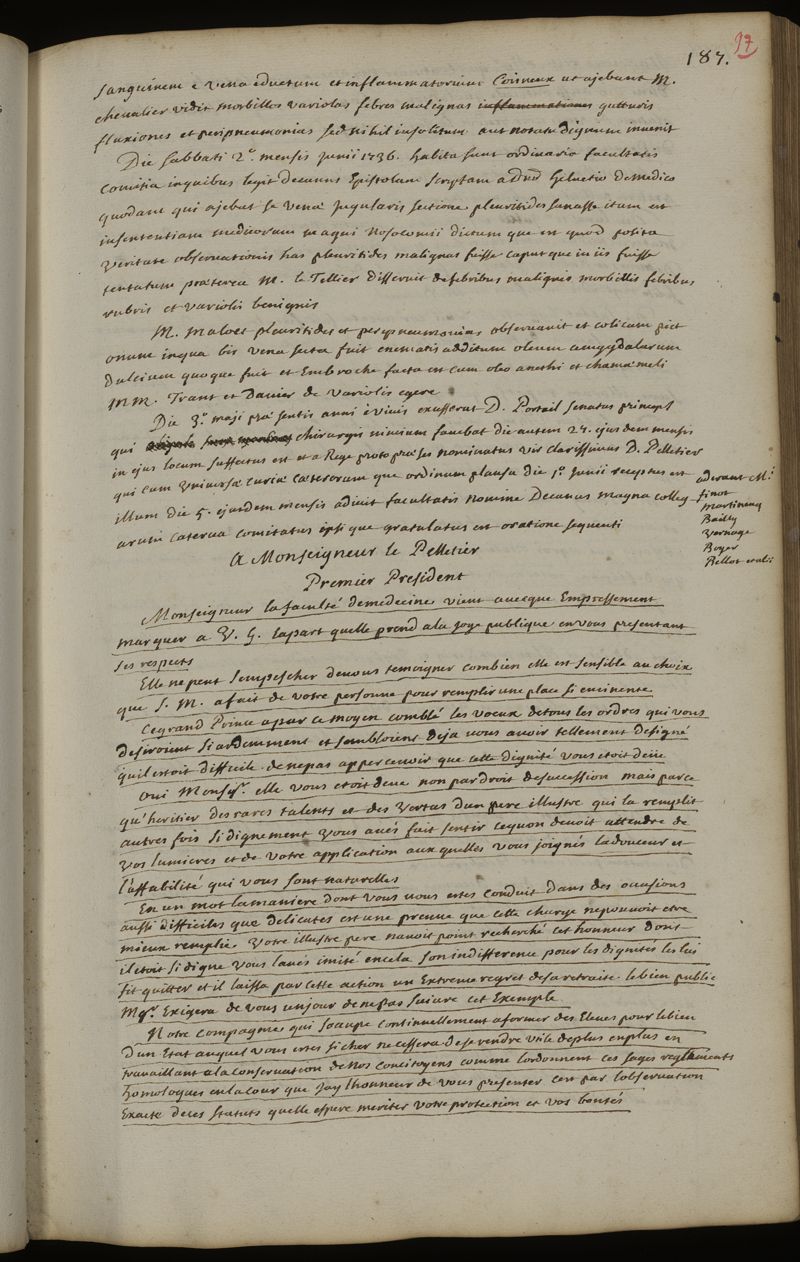 187. 97
sanguinem e vena eductum et inflammatorium Coineux ut ajebant M.
chevalier vidit morbillos variolas febres malignas inflammationes gutturis
fluxiones et peripneumonias sed nihil insolitum aut notatu dignum invenit
Die sabbati 2a. mensis junii 1736. habita sunt ordinario facultatis
Comitia in quibus legit decanus Epistolam scriptam a Dno helvetio de medico
quodam qui ajebat se venae jugularis sectione pleuritides sanasse itum est
in sententiam medicorum magni nosocomii dictumque est quod posita
veritate observationis has pleuritides malignas fuisse caputque in iis fuisse
tentatum praeterea M. le Tellier disseruit de febribus malignis morbillis febribus
rubris et variolis benignis
M. maloet pleuritides et peripneumonias observavit et colicam pict
onum in qua bis vena secta fuit enematis additum oleum amygdalarum
dulcium quoque fuit et Embroche facta est cum oleo anethi et chamaemeli
MM. Trant et Davier de variolis egere
Die 3a. maji praesentis anni è vivis excesserat D. Portail senatus princeps
qui chirurgis nimium favebat die autem 27. ejusdem mensis
in ejus locum suffectus est et a Rege protopraeses nominatus vir clarissimus D. Pelletier
qui cum universae curiae caeterorumque ordinum plausu die 1a. junii receptus est
illum die 5. ejusdem mensis adivit facultatis nomine Decanus magna colleg
arum caterva comitatus ipsique gratulatus est oratione sequenti
aderant M.i
finot
martineng
Bailly
vernage
Boyer
Pellot et alii
A Monseigneur le Pelletier
Premier President
Monseigneur la faculté de medecine vient avecque Empressement
marquer a V. G. la part quelle prend a la joye publique en vous presentant
ses respects
Elle ne peut sempescher de vous temoigner combien elle est sensible au choix
que S. M. a fait de votre personne pour remplir une place si eminente
Ce grand Prince a par ce moyen comblé les voeux de tous les ordres qui vous
desiroient si ardemment et sembloient deja vous avoir tellement designé
quil estoit difficile de ne pas appercevoir que cette dignité vous etoit deüe
Oui Monsgr. elle vous etoit deue non par droit de succession mais parce
qu'heritier des rares talents et des vertus dun pere illustre qui la remplit
autres fois si dignement vous avés fait sentir ce quon devoit attendre de
vos lumieres et de votre application aux quelles vous joignés la douceur et
l'affabilité qui vous sont naturelles
En un mot la maniere dont vous vous estes conduit dans des occasions
aussi difficiles que delicates est une preuve que cette charge ne pouvoit etre
mieux remplie votre illustre pere navoit point recherché cet honneur dont
il etoit si digne vous lavés imité en cela son indifference pour les dignités les lui
fit quitter et il laissa par cette action un Extreme regret de sa retraite le bien public
Mgr. Exigera de vous un jour de ne pas suivre cet Exemple
Notre compagnie qui soccupe continuellement a former des Eleves pour le bien
dun Etat auquel vous estes si cher ne cessera de se rendre utile de plus en plus en
travaillant a la conservation de nos concitoyens comme lordonnent ces sages reglements
homologues en la cour que jay lhonneur de vous presenter cest par lobservation
Exacte de ces statuts quelle espere meriter votre protection et vos bontés